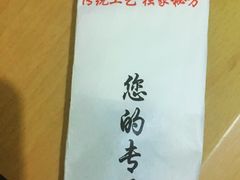 传统工艺 独家秘方
您的专